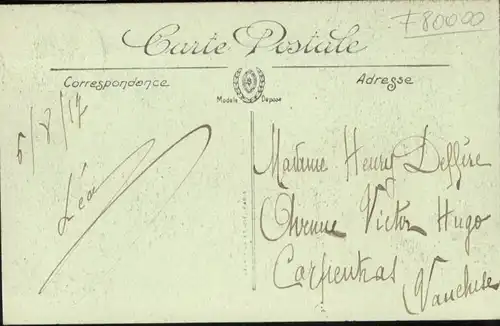 F80000
Carte Postale
Correspondance
Adresse
Modèle Déposé
5/8/17
Léa
Madame Henry Deffère
Avenue Victor Hugo
Carpentras
Vaucluse